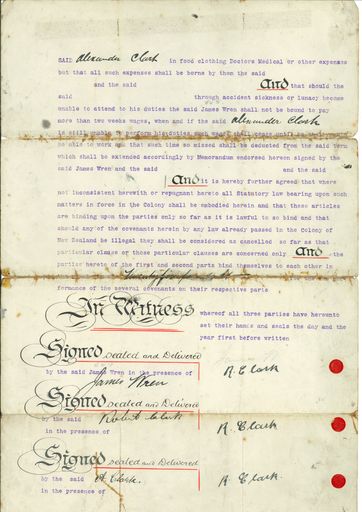 SAID Alexander Clark in food clothing Doctors Medical or other expenses
but that all such expenses shall be borne by then the said
and the said And that should the
said through accident sickness or lunacy become
unable to attend to his duties the said James Wren shall not be bound to pay
more than two weeks wages, when and if the said Alexander Clark
is still unable to perform his duties such
able to work and that such time so missed shall be deducted from the said term
which shall be extended accordingly by Memorandum endorsed hereon signed by the
said James Wren and the said and the said
And it is hereby further agreed that where
not inconsistent herewith or repugnant hereto all Statutory law bearing upon such
matters in force in the Colony shall be embodied herein and that these articles
are binding upon the parties only so far as it is lawful to so bind and that
should any of the covenants herein by any law already passed in the Colony of
New Zealand be illegal they shall be considered as cancelled so far as that
particular clause or those particular clauses are concerned only And the
parties hereto of the first and second parts bind themselves to each other in
formance of the several covenants on their respective parts
In Witness whereof all three parties have hereunto
set their hands and seals the day and the
year first before written
Signed sealed and Delivered
by the said James Wren in the presence of R. Clark
James Wren
Signed sealed and Delivered
by the said Robert Clark R. Clark
in the presence of
Signed sealed and Delivered
by the said A Clark. R. Clark
in the presence of